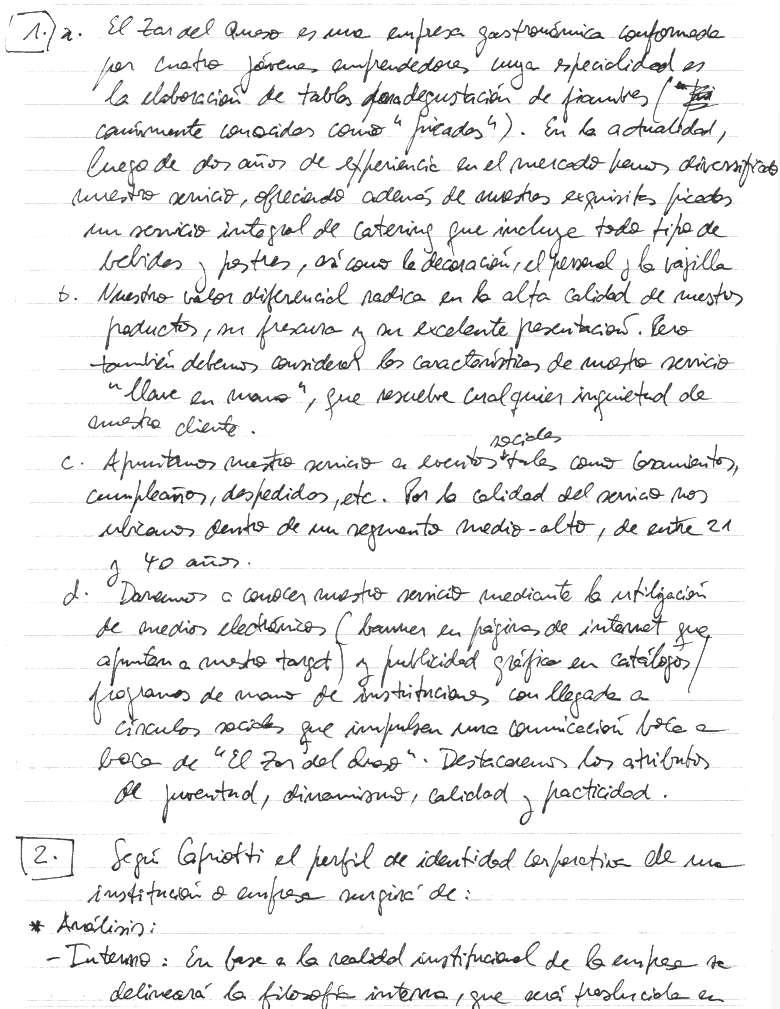 1. a. El Zar del Queso es una empresa gastronómica conformada
por cuatro jóvenes emprendedores cuya especialidad es
la elaboración de tablas para degustación de fiambres (*
comúnmente conocidas como "picadas"). En la actualidad,
luego de dos años de experiencia en el mercado hemos diversificado
nuestro servicio, ofreciendo además de nuestras exquisitas picadas
un servicio integral de catering que incluye todo tipo de
bebidas y postres, así como la decoración, el personal y la vajilla
b. Nuestro valor diferencial radica en la alta calidad de nuestros
productos, su frescura y su excelente presentación. Pero
también debemos considerar las características de nuestro servicio
"llave en mano", que resuelve cualquier inquietud de
nuestro cliente.
sociales
c. Apuntamos nuestro servicio a eventos * tales como casamientos,
cumpleaños, despedidas, etc. Por la calidad del servicio nos
ubicamos dentro de un segmento medio-alto, de entre 21
y 40 años.
d. Daremos a conocer nuestro servicio mediante la utilización
de medios electrónicos (banner en páginas de internet que
apuntan a nuestro target) y publicidad gráfica en catálogos/
programas de mano de instituciones con llegada a
círculos sociales que impulsen una comunicación boca a
boca de "El Zar del Queso". Destacaremos los atributos
de juventud, dinamismo, calidad y practicidad.
2. Según Capriotti el perfil de identidad corporativa de una
institución o empresa surgirá de:
* Análisis:
- Interno: En base a la realidad institucional de la empresa se
delineará la filosofía interna, que será traslucida en